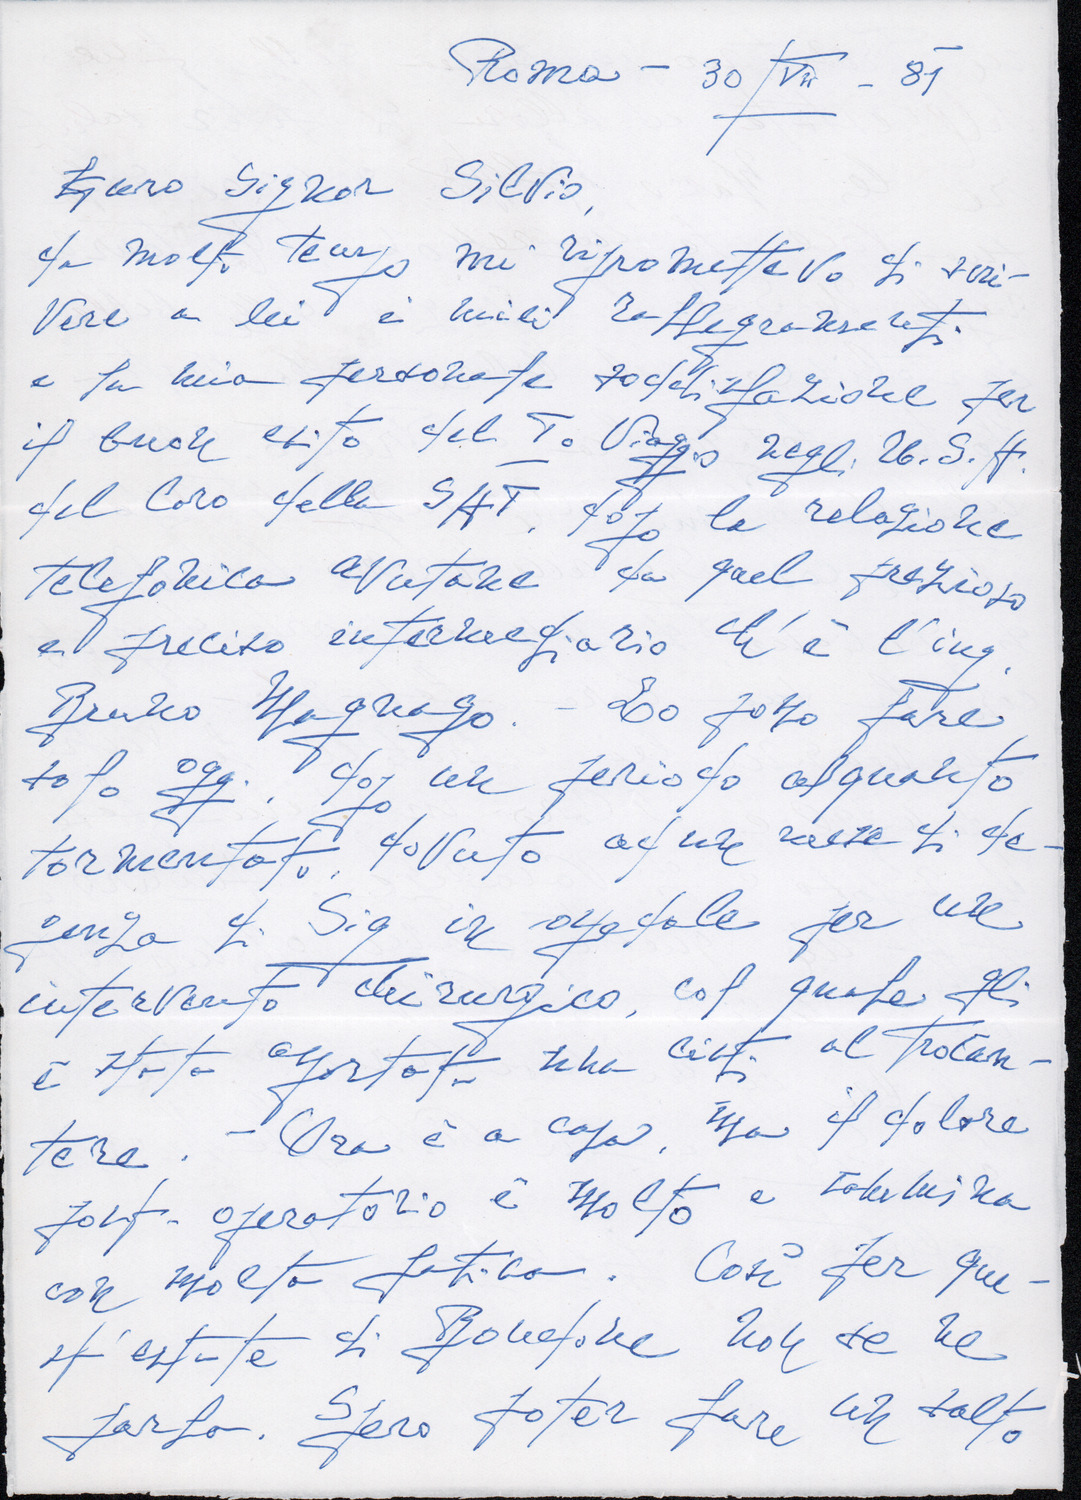 Roma - 30/VII - 81
Caro Signor Silvio,
da molto tempo mi ripromettevo di scri-
vere a lei i miei rallegramenti
e la mia personale soddisfazione per
il buon esito del I° Viaggio negli U.S.A.
del Coro della SAT, dopo la relazione
telefonica avutane da quel prezioso
e preciso intermediario ch'è l'ing.
Bruno Magnago. - Lo posso fare
solo oggi, dopo un periodo alquanto
tormentato, dovuto ad un mese di de-
genza di Sig in ospedale per un
intervento chirurgico, col quale gli
è stata asportata una cisti al trocan-
tere. - Ora è a casa, ma il dolore
post-operatorio è molto e cammina
con molta fatica. Così per que-
st'estate di Bondone non se ne
parla. Spero poter fare un salto